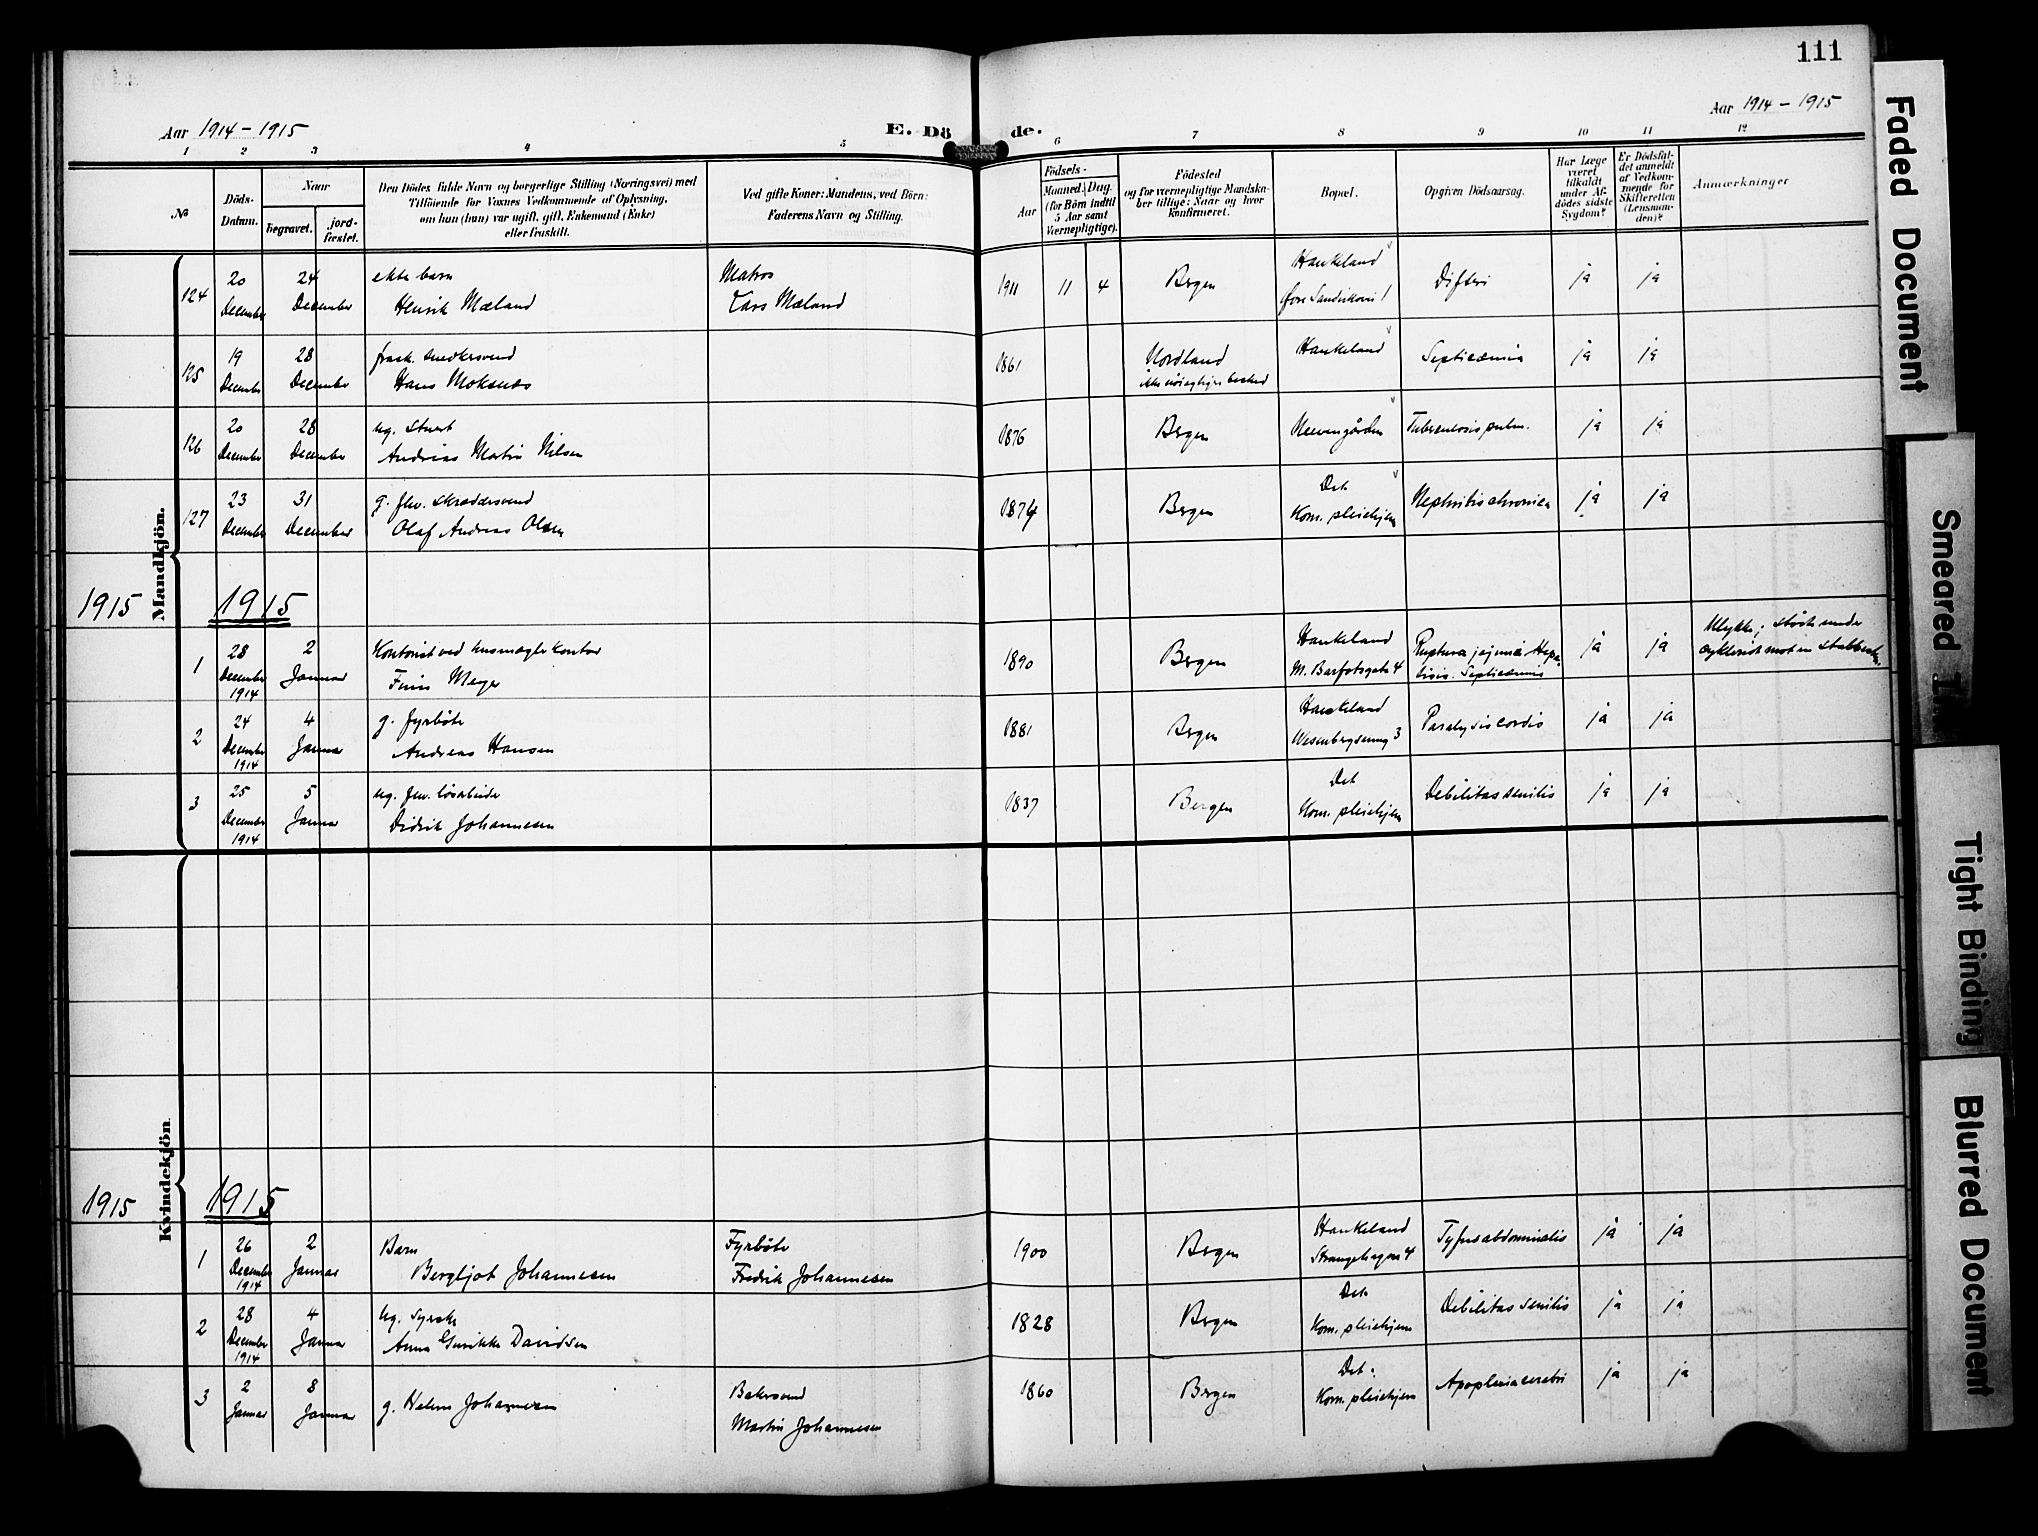 111
Aar 1914-1915
E. Dö de.
Aar 1914-1915
1 2 3 4 5 6 7 8 9 10 11 12
№
Döds-
Datum.
Naar
begravet.
jord-
fæstet.
Den Dödes fulde Navn og borgerlige Stilling (Næringsvei) med
Tilföiende for Voxnes Vedkommende af Oplysning,
om han (hun) var ugift, gift, Enkemand (Enke)
eller fraskilt.
Ved gifte Koner: Mandens, ved Börn:
Faderens Navn og Stilling.
Aar
Födsels-
Maaned. Dag.
(for Börn indtil
5 Aar samt
Værnepligtige).
Födested
og for værnepligtige Mandska-
ber tillige: Naar og hvor
konfirmeret.
Bopæl.
Opgiven Dödsaarsag.
Har Læge
været
tilkaldt
under Af-
dödes sidste
Sygdom?
Er Dödsfal-
det anmeldt
af Vedkom-
mende for
Skifteretten
(Lensman-
den)?
Anmærkninger
Mandkjön.
124 20 December 24 December ekte barn
Henrik Mæland
Matros
Lars Mæland
1911 11 4 Bergen Haukeland
Øvre Sandviksvei 1
Difteri ja ja
125 19 December 28 December frask. snedkersvend
Hans Moksnes
1861 Nordland
ikke nøiagtigere besked
Haukeland Septicæmia ja ja
126 20 December 28 December ug.
Andreas Martin Nilsen
1876 Bergen Neevengården Tuberculosis pulm. ja ja
127 23 December 31 December g. fhv. skræddersvend
Olaf Andreas Olsen
1874 Bergen Det
Kom. pleiehjem
Nephritis chronica ja ja
1915 1915
1 28 December 1914 2 Januar Kontorist ved husmæglerkontor
Meyer
1890 Bergen Haukeland
M. Barfotsgate 4
Ruptura jejuni
Septicæmia
ja ja
Ulykke; stødte under
cykleridt mot en
2 24 December 1914 4 Januar g. fyrbøter
Andreas Hansen
1881 Bergen Haukeland
Wesenbergsmug 3
Paralysis cordis ja ja
3 25 December 1914 5 Januar ug. fhv. løsarbeider
Didrik Johannesen
1837 Bergen Det
Kom. pleiehjem
Debilitas senilis ja ja
Kvindekjön
1915 1915
1 26 December 1914 2 Januar Barn
Bergljot Johannesen
Fyrbøter
Fredrik Johannesen
1900 Bergen Haukeland
Strangehagen 4
Tyfus abdominalis ja ja
2 28 December 1914 4 Januar ug. syerske
Anna Davidsen
1828 Bergen Det
Kom. pleiehjem
Debilitas senilis ja ja
3 2 Januar 8 Januar g. Helene Johannesen
Bakersvend
Martin Johannesen
1860 Bergen Det
Kom. pleiehjem
Apoplexia cerebri ja ja
Faded Document
Smeared
Tight Binding
Blurred Document